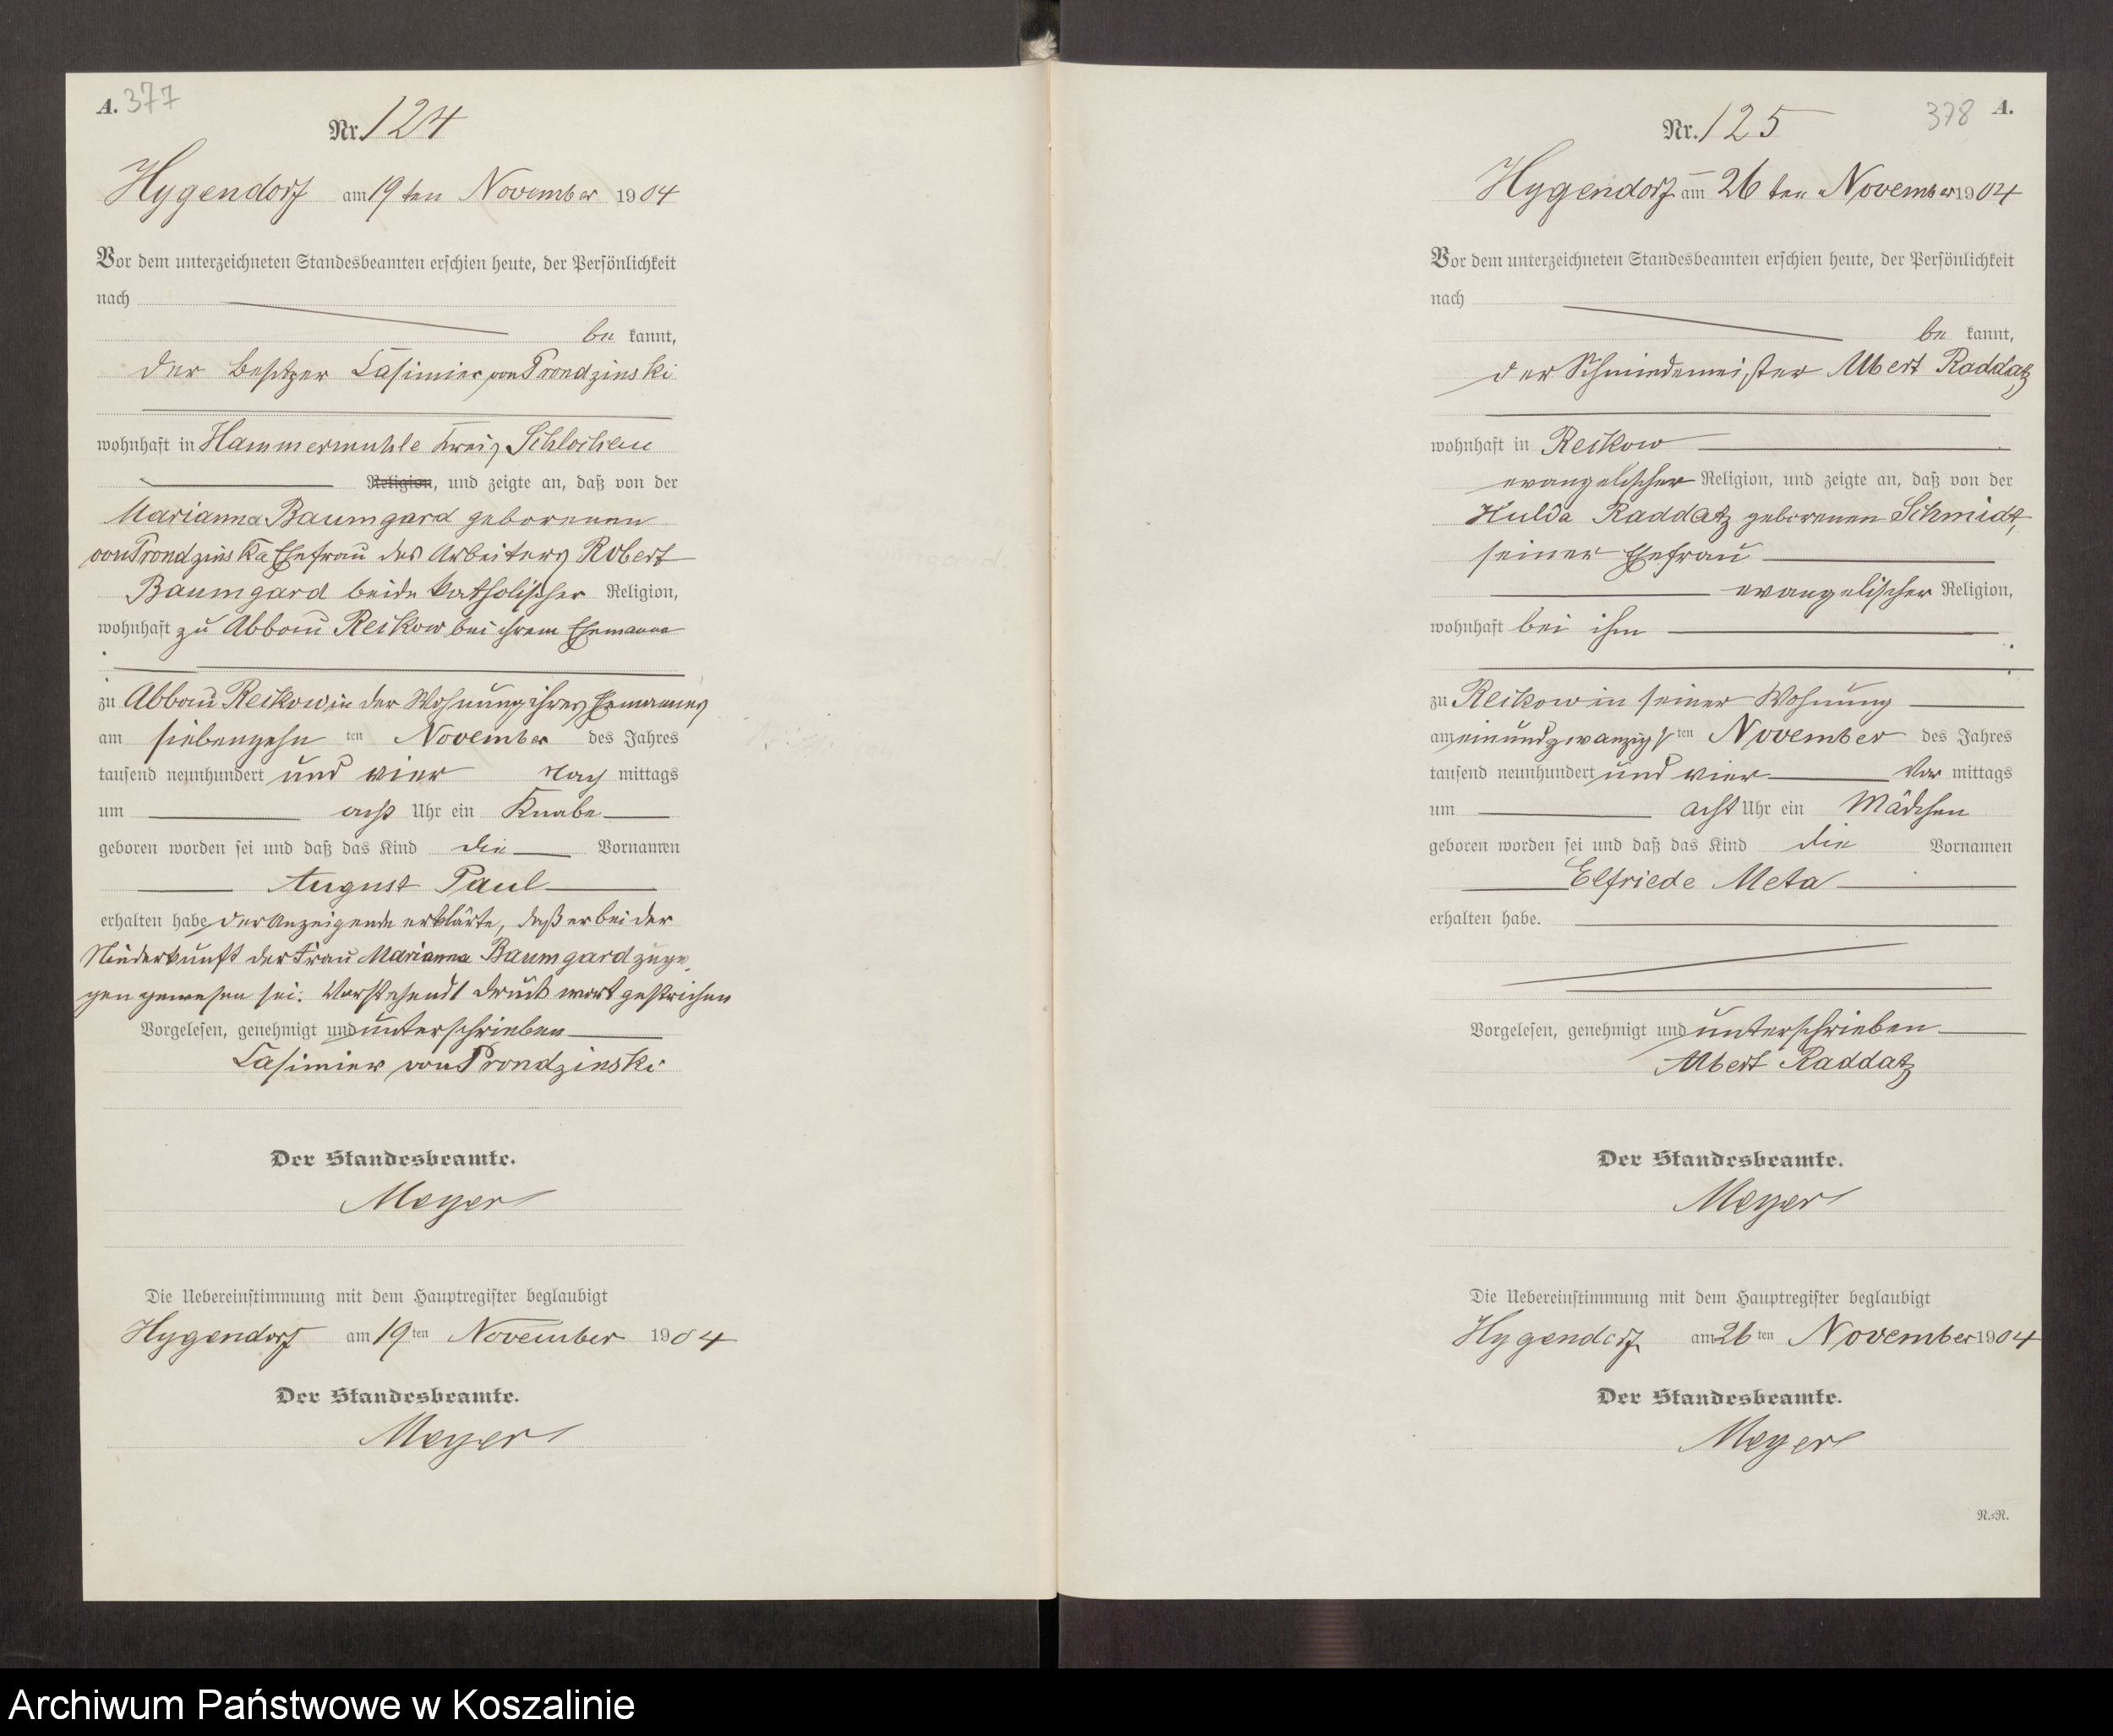 A. 377
Nr. 124
Hygendorf am 19 ten November 1904
Vor dem unterzeichneten Standesbeamten erschien heute, der Persönlichkeit
nach
be kannt,
der Besitzer Casimier von Prondzinski
wohnhaft in Hammermühle Kreis Schlochau
Religion, und zeigte an, daß von der
Marianna Baumgard geborenen
von Prondzinska Ehefrau des Arbeiters Robert
Baumgard beide katholischer Religion,
wohnhaft zu Abbau Reckow bei ihrem Ehemanne
zu Abbau Reckow in der Wohnung ihres Ehemannes
am siebenzehn ten November des Jahres
tausend neunhundert und vier Nach mittags
um acht Uhr ein Knabe
geboren worden sei und daß das Kind die Vornamen
August Paul
erhalten habe, der Anzeigende erklärte, daß er bei der
Niederkunft der Frau Marianna Baumgard zuge
gen gewesen sei. Vorstehend 1 Druckwort gestrichen
Vorgelesen, genehmigt und unterschrieben
Casimier von Prondzinski
Der Standesbeamte.
Meyer
Die Uebereinstimmung mit dem Hauptregister beglaubigt
Hygendorf am 19 ten November 1904
Der Standesbeamte.
Meyer
378 A.
Nr. 125
Hygendorf am 26 ten November 1904
Vor dem unterzeichneten Standesbeamten erschien heute, der Persönlichkeit
nach
be kannt,
der Schmiedemeister Albert Raddatz
wohnhaft in Reckow
evangelischer Religion, und zeigte an, daß von der
Hulda Raddatz geborenen Schmidt,
seiner Ehefrau
evangelischer Religion,
wohnhaft bei ihm
zu Reckow in seiner Wohnung
am einundzwanzigs ten November des Jahres
tausend neunhundert und vier Vor mittags
um acht Uhr ein Mädchen
geboren worden sei und daß das Kind die Vornamen
Elfriede Meta
erhalten habe.
Vorgelesen, genehmigt und unterschrieben
Albert Raddatz
Der Standesbeamte.
Meyer
Die Uebereinstimmung mit dem Hauptregister beglaubigt
Hygendorf am 26 ten November 1904
Der Standesbeamte.
Meyer
N.=R.
Archiwum Państwowe w Koszalinie